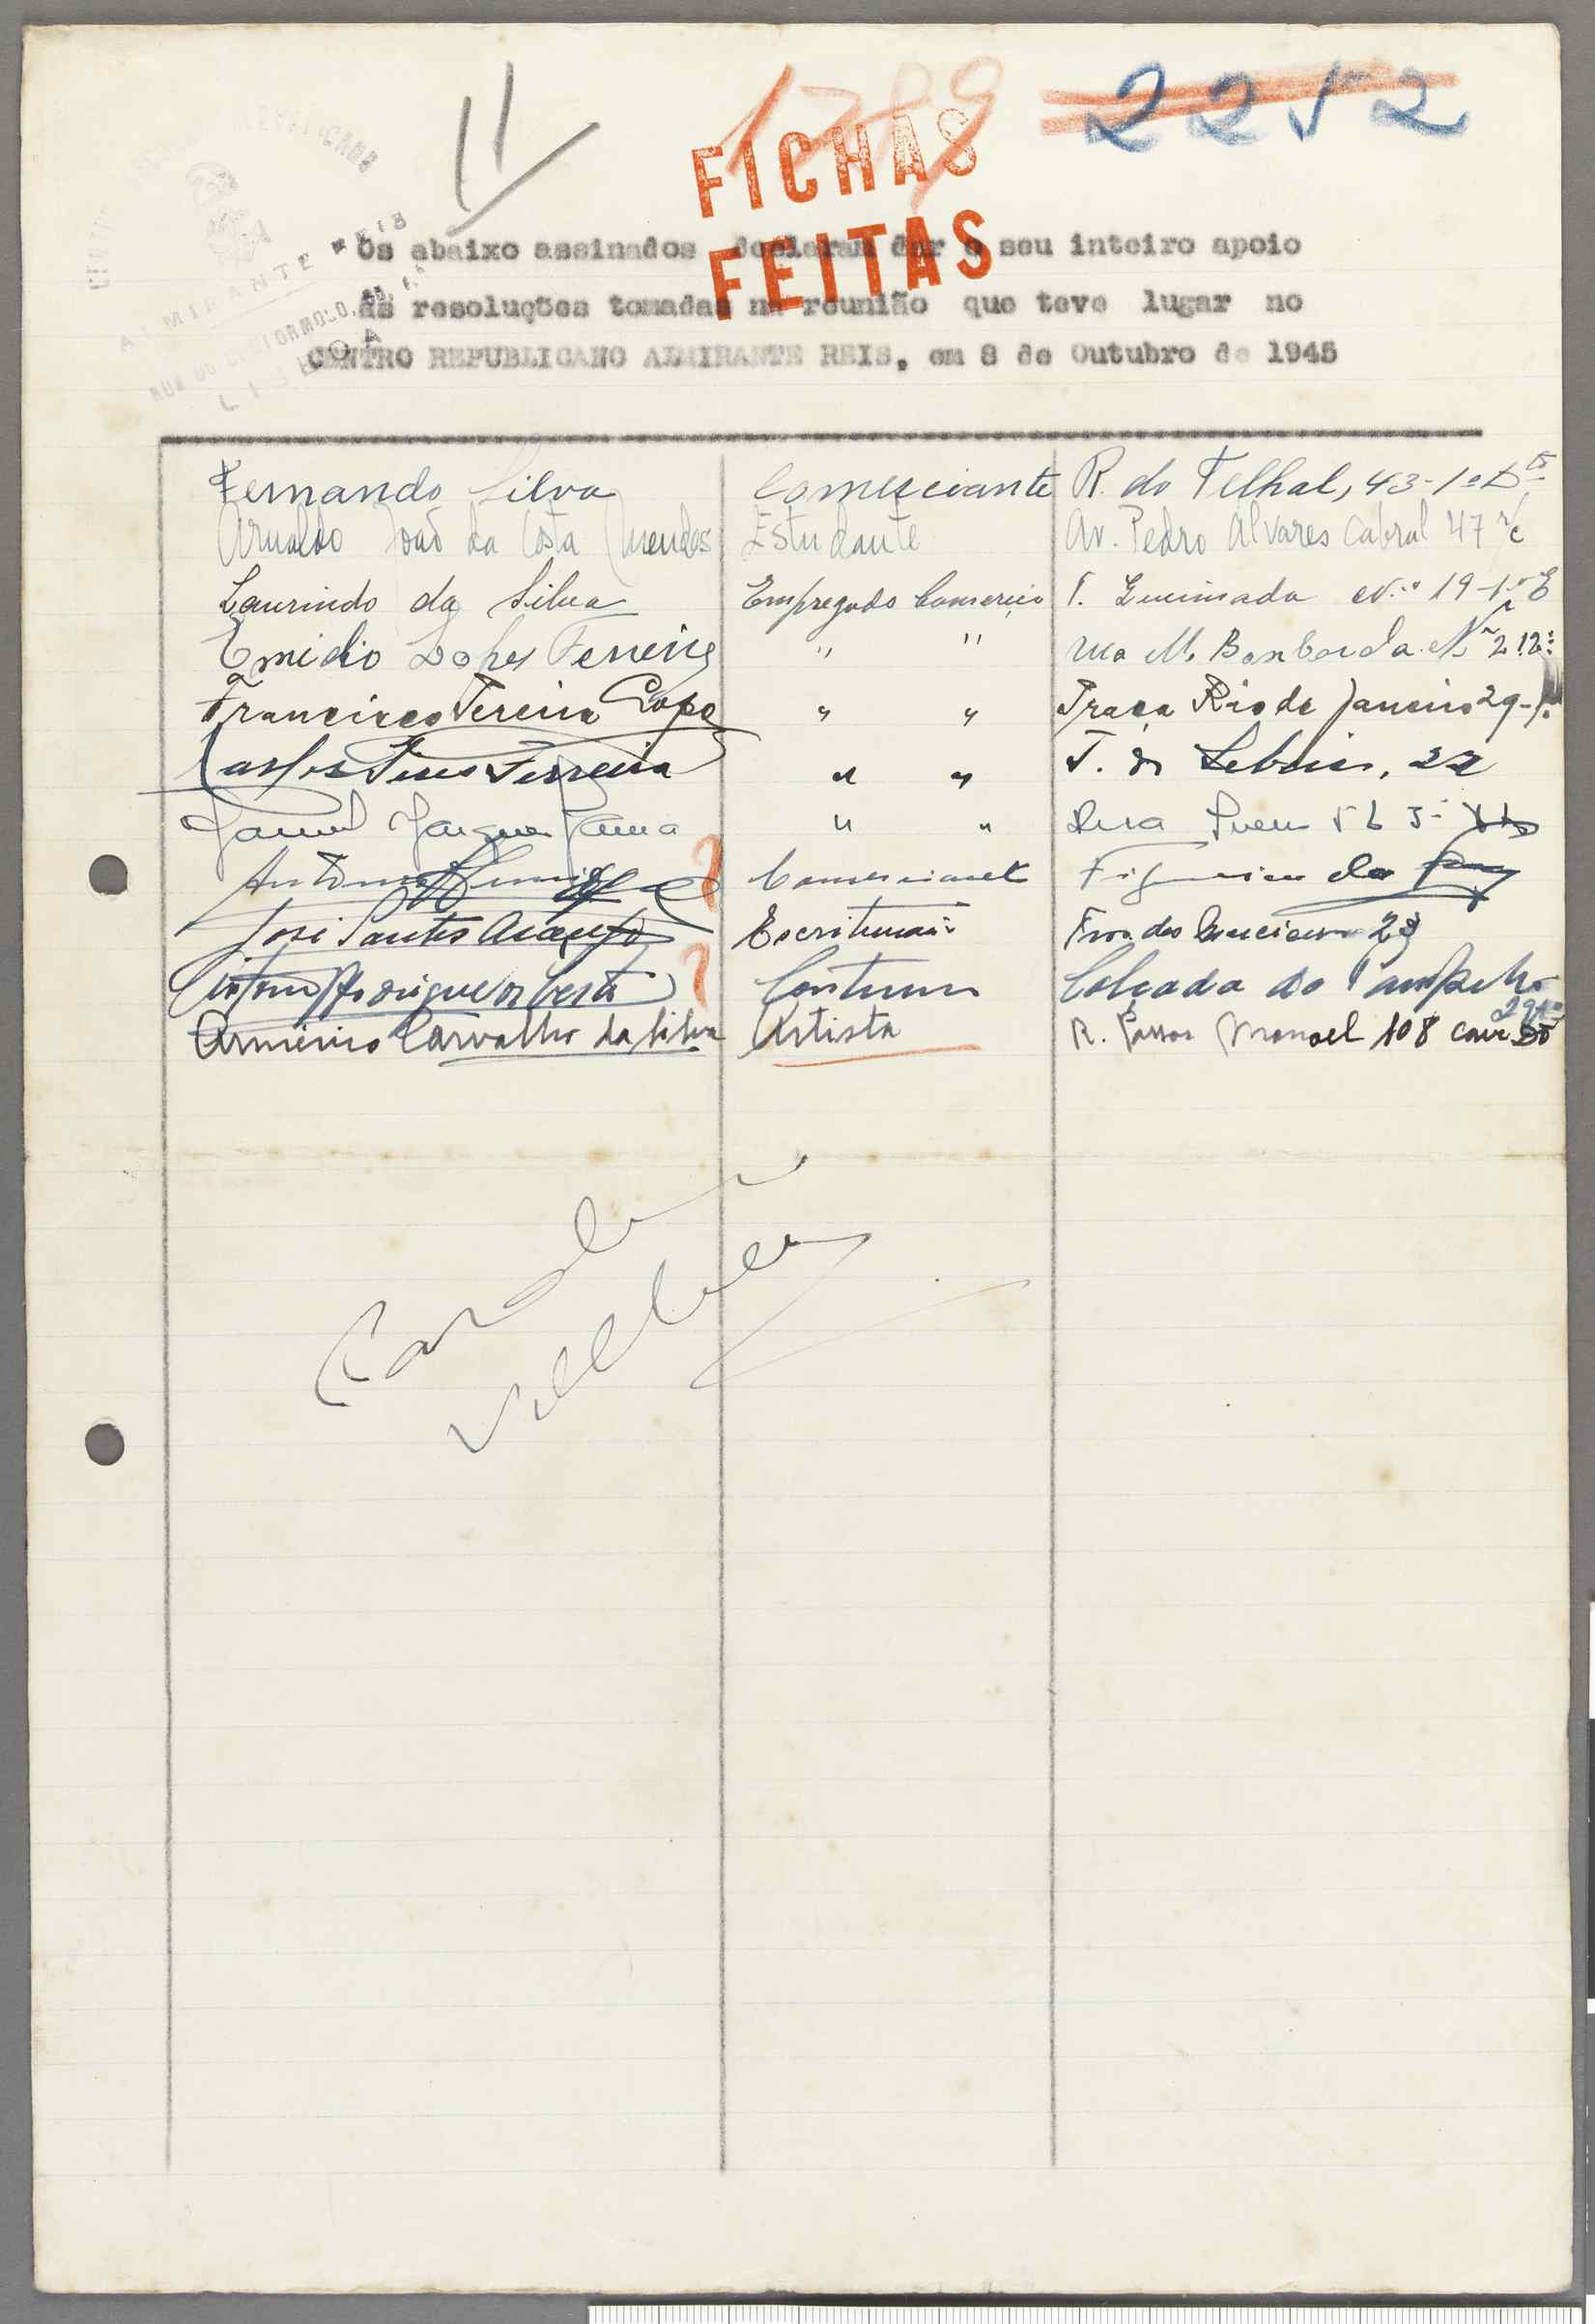 11
1789
2252
FICHAS
FEITAS
REPUBLICANO
ALMIRANTE REIS
LISBOA
Os abaixo assinados declaram dar o seu inteiro apoio
ás resoluções tomadas na reunião que teve lugar no
CENTRO REPUBLICANO ALMIRANTE REIS, em 8 de Outubro de 1945
Fernando Silva Comerciante R. do Telhal, 43-1º Dtº
Arnaldo João da Costa Mendes Estudante Av. Pedro Alvares Cabral 47 r/c
Laurindo da Silva Empregado Comercio T. Queimada Nº 19-1º E
Emidio Lopes Ferreira " " Rua M. Bombarda Nº 2
Francisco Pereira Lopes " " Praça Rio de Janeiro 29-1º
Carlos Pires Ferreira " " T. do 22
" " Rua
? Comerciante Figueira da Foz
José Santos Araujo Escriturario 23
Antonio Rodrigues Costa ? Calçada do
Armenio Carvalho da Silva Artista R. Passos Manoel 108 cave